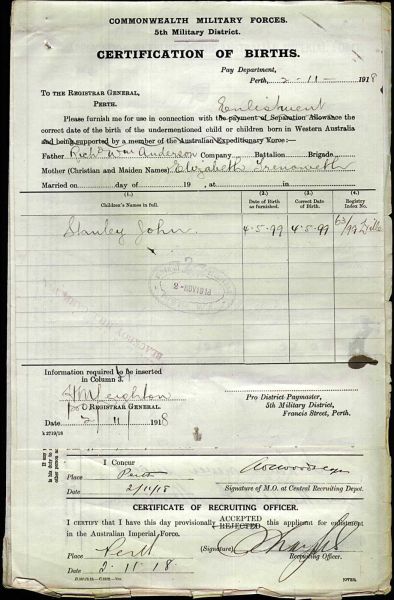 COMMONWEALTH MILITARY FORCES.
5th Military District.
CERTIFICATION OF BIRTHS.
Pay Department,
Perth, 2-11- 1918
TO THE REGISTRAR GENERAL,
PERTH.
Enlistment
Please furnish me for use in connection with the payment of Separation Allowance the
correct date of the birth of the undermentioned child or children born in Western Australia
and being supported by a member of the Australian Expeditionary Force:—
Father Richd Wm Anderson Company Battalion Brigade
Mother (Christian and Maiden Names) Elizabeth Trenoweth
Married on day of 19 , at in
(1.) (2.) (3.) (4.)
Children's Names in full. Date of Birth as furnished. Correct Date of Birth. Registry Index No.
Stanley John. 4.5.99 4.5.99 63/99
Information required to be inserted
in Column 3.
REGISTRAR GENERAL.
Date 2/11/ 1918
k 2719/18
Pro District Paymaster,
5th Military District,
Francis Street, Perth.
I Concur
Place Perth
Date 2/11/18
Signature of M.O. at Central Recruiting Depot.
CERTIFICATE OF RECRUITING OFFICER.
I CERTIFY that I have this day provisionally ACCEPTED REJECTED this applicant for enlistment
in the Australian Imperial Force.
Place Perth (Signature)
Date 2.11.18. Recruiting Officer.